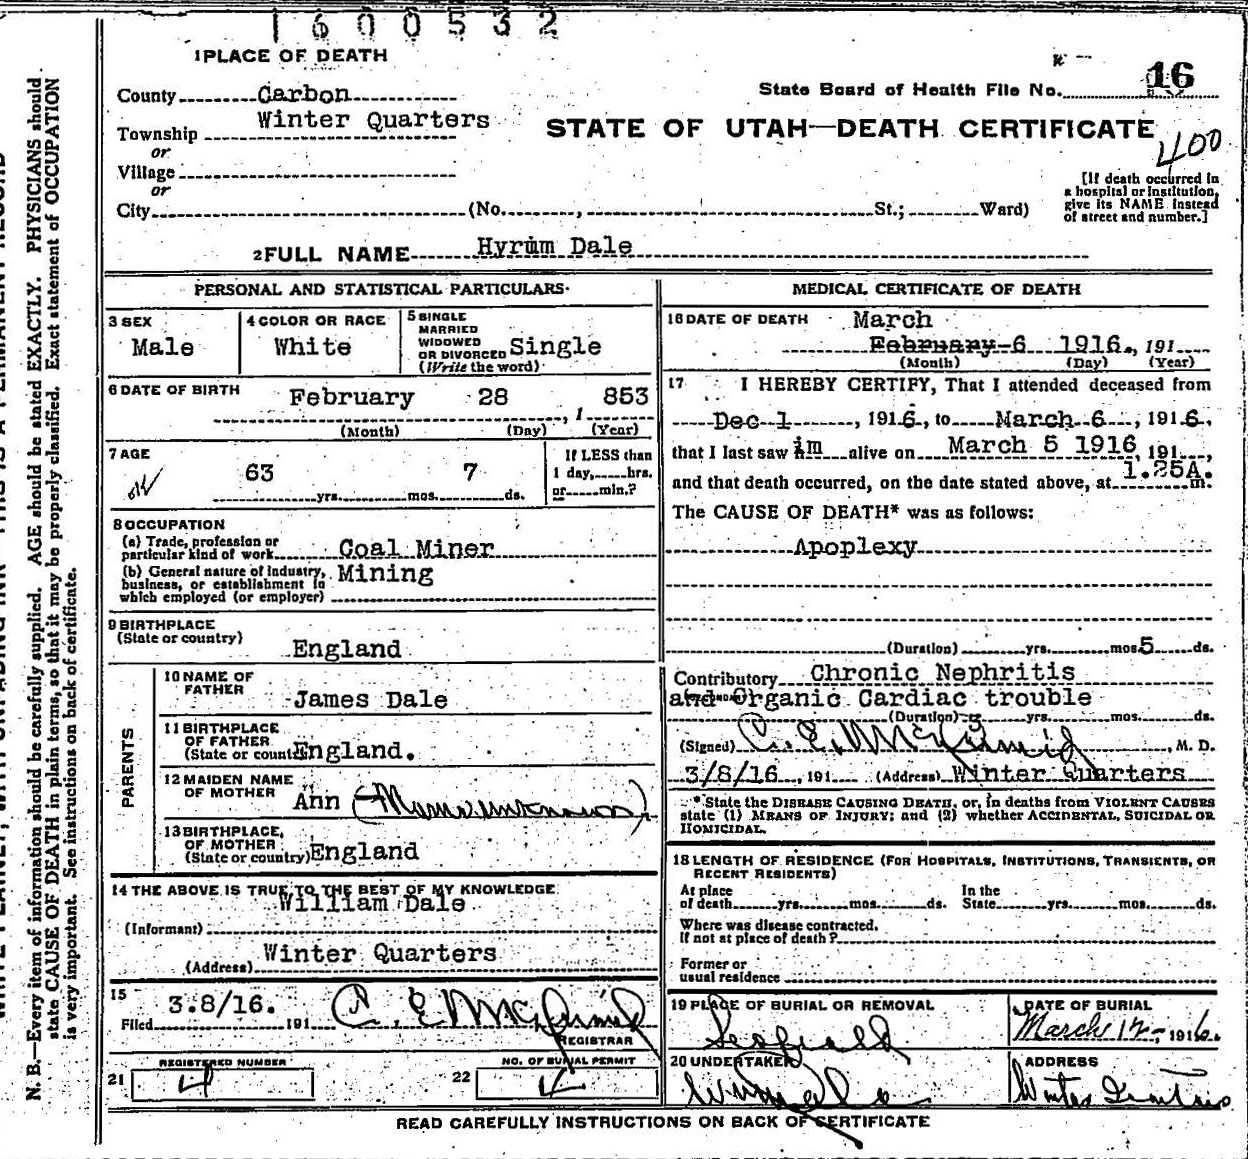 1600532
1 PLACE OF DEATH
County Carbon
State Board of Health File No. 16
Township Winter Quarters
STATE OF UTAH—DEATH CERTIFICATE
400
or
Village
or
City (No. , St.; Ward)
[If death occurred in
a hospital or institution,
give its NAME instead
of street and number.]
2 FULL NAME Hyrum Dale
PERSONAL AND STATISTICAL PARTICULARS
3 SEX
Male
4 COLOR OR RACE
White
5 SINGLE
MARRIED
WIDOWED
OR DIVORCED Single
(Write the word)
6 DATE OF BIRTH
February 28 , 1 853
(Month) (Day) (Year)
7 AGE
63 yrs. mos. 7 ds.
If LESS than
1 day, hrs.
or min.?
8 OCCUPATION
(a) Trade, profession or
particular kind of work Coal Miner
(b) General nature of industry, Mining
business, or establishment in
which employed (or employer)
9 BIRTHPLACE
(State or country) England
PARENTS
10 NAME OF
FATHER James Dale
11 BIRTHPLACE
OF FATHER
(State or country) England.
12 MAIDEN NAME
OF MOTHER Ann
13 BIRTHPLACE,
OF MOTHER
(State or country) England
14 THE ABOVE IS TRUE TO THE BEST OF MY KNOWLEDGE
William Dale
(Informant)
(Address) Winter Quarters
15
Filed 3.8/16. 191
REGISTRAR
REGISTERED NUMBER
21 4
NO. OF BURIAL PERMIT
22 4
MEDICAL CERTIFICATE OF DEATH
16 DATE OF DEATH March
February 6 1916., 191
(Month) (Day) (Year)
17 I HEREBY CERTIFY, That I attended deceased from
Dec 1 , 1916, to March 6 , 1916,
that I last saw im alive on March 5 1916, 191 ,
and that death occurred, on the date stated above, at 1.25A. m.
The CAUSE OF DEATH* was as follows:
Apoplexy
(Duration) yrs. mos. 5 ds.
Contributory Chronic Nephritis
and Organic Cardiac trouble
(Duration) yrs. mos. ds.
(Signed) , M. D.
3/8/16 , 191 (Address) Winter Quarters
* State the DISEASE CAUSING DEATH, or, in deaths from VIOLENT CAUSES
state (1) MEANS OF INJURY; and (2) whether ACCIDENTAL, SUICIDAL OR
HOMICIDAL.
18 LENGTH OF RESIDENCE (FOR HOSPITALS, INSTITUTIONS, TRANSIENTS, OR
RECENT RESIDENTS)
At place
of death yrs. mos. ds.
In the
State yrs. mos. ds.
Where was disease contracted.
if not at place of death?
Former or
usual residence
19 PLACE OF BURIAL OR REMOVAL
Scofield
DATE OF BURIAL
March 12, 1916.
20 UNDERTAKER
Wm Dale
ADDRESS
Winter Quarters
READ CAREFULLY INSTRUCTIONS ON BACK OF CERTIFICATE
N. B.—Every item of information should be carefully supplied. AGE should be stated EXACTLY. PHYSICIANS should
state CAUSE OF DEATH in plain terms, so that it may be properly classified. Exact statement of OCCUPATION
is very important. See instructions on back of certificate.